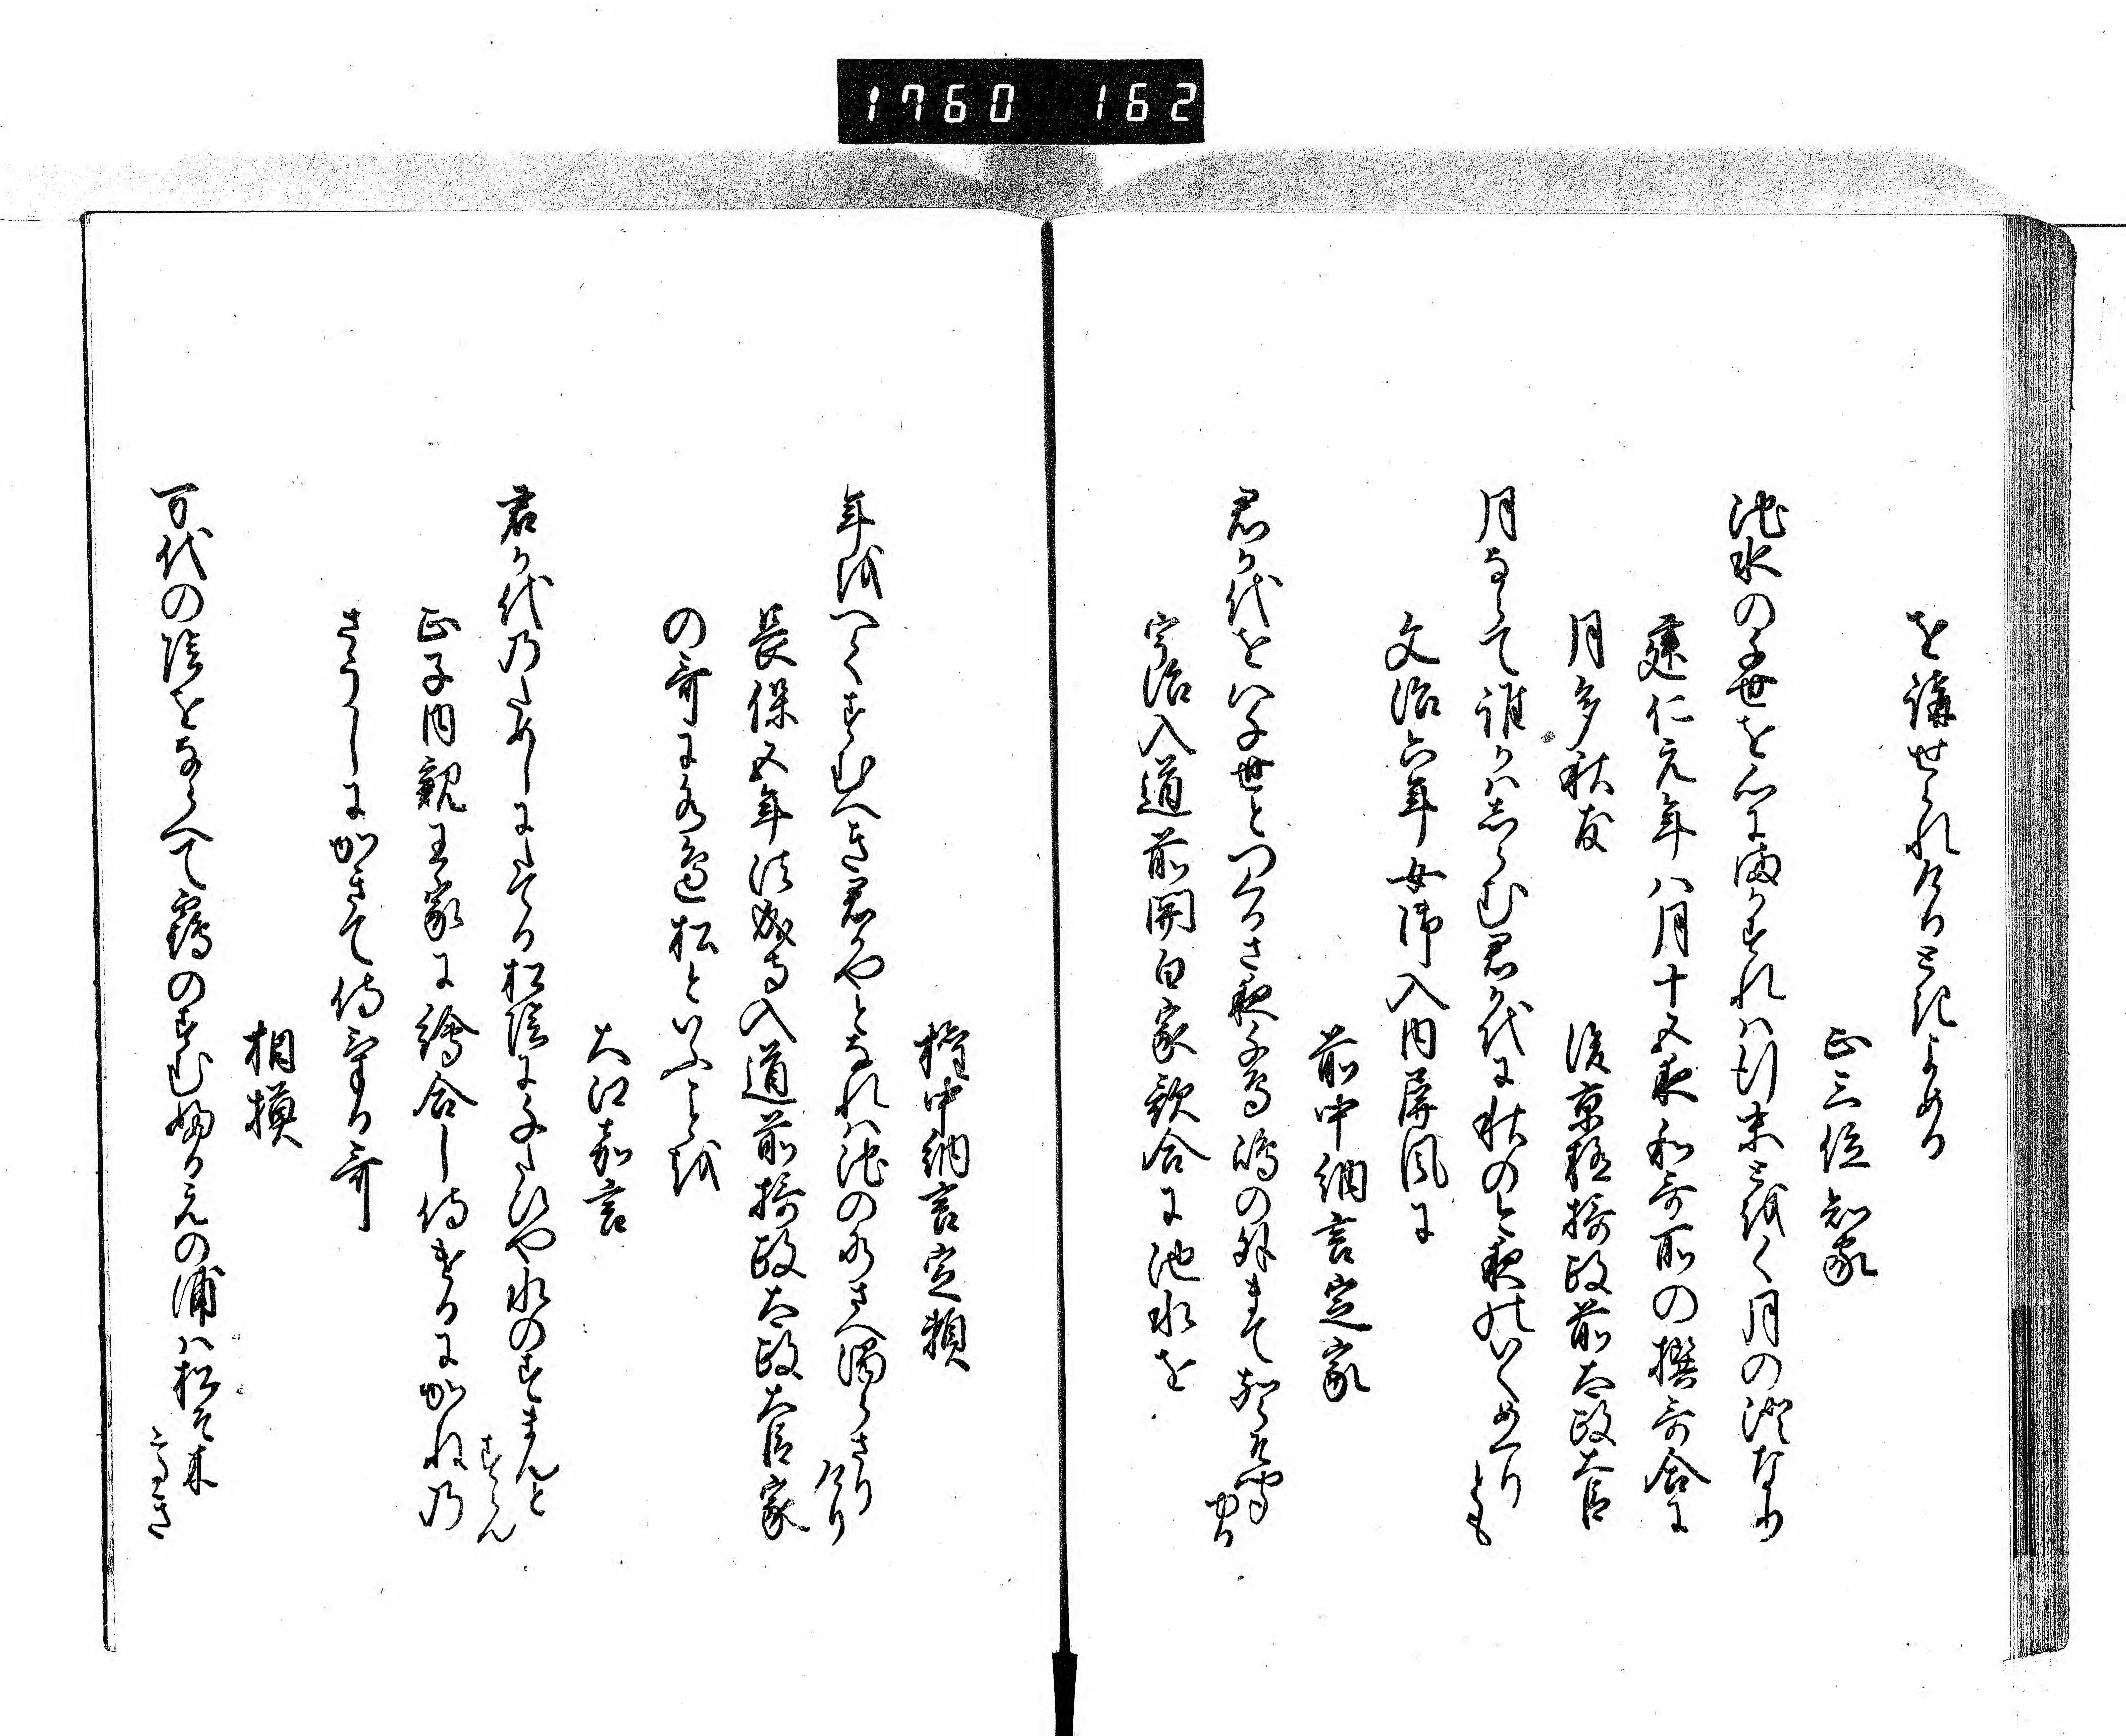 1760 162
を講せられける時よめる
正三位知家
池水の千世を心にまかすれは行末とをく月の澄なり
建仁元年八月十五夜和哥所の撰哥合に
月多秋友
後京極摂政前太政大臣
月ならて誰かはしらむ君か代に秋のこよひのいくめくり
とも
文治六年女御入内屏風に
前中納言定家
君か代をは千世とつくるさ夜千鳥嶋の外まて声聞ゆ
也
宇治入道前関白家歌合に池水を
権中納言定頼
年をへてすむへき君かやとなれは池の水さへ濁らさり
けり
長保五年法成寺入道前摂政太政大臣家
の哥に水辺松といふことを
大江嘉言
君か代のためしにたてる松陰にいくたひや水のすまんと
すらん
正子内親王家に絵合し侍けるにかねの
さうしにかきて侍ける哥
相模
万代の陰をならへて鶴のすむふるえの浦は松そ木
たかき